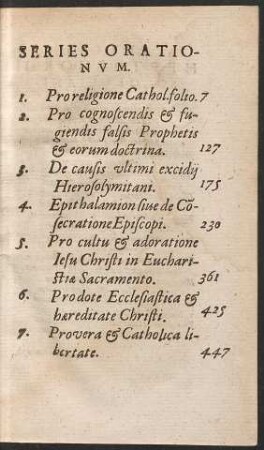 SERIES ORATIO-
NVM.
1. Pro religione Cathol. folio. 7
2. Pro cognoscendis & fu-
giendis falsis Prophetis
& eorum doctrina. 127
3. De causis vltimi excidij
Hierosolymitani. 175
4. Epithalamion siue de Cõ-
secratione Episcopi. 230
5. Pro cultu & adoratione
Iesu Christi in Euchari-
stiæ Sacramento. 361
6. Pro dote Ecclesiastica &
hæreditate Christi. 425
7. Pro vera & Catholica li-
bertate. 447